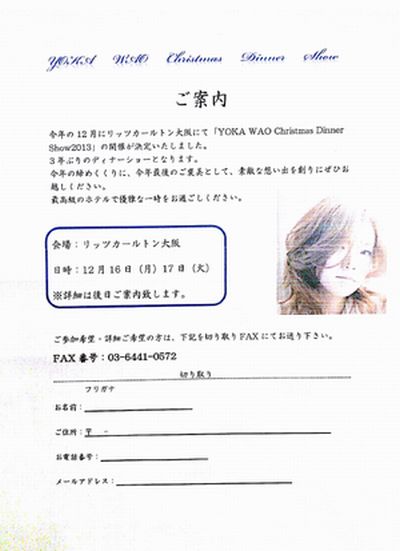 YOKA WAO Christmas Dinner Show
ご案内
今年の12月にリッツカールトン大阪にて「YOKA WAO Christmas Dinner
Show2013」の開催が決定いたしました。
3年ぶりのディナーショーとなります。
今年の締めくくりに、今年最後のご褒美として、素敵な想い出を創りにぜひお
越しください。
最高級のホテルで優雅な一時をお過ごしください。
会場：リッツカールトン大阪
日時：12月16日（月）17日（火）
※詳細は後日ご案内致します。
ご参加希望・詳細ご希望の方は、下記を切り取りFAXにてお送り下さい。
FAX番号：03-6441-0572
切り取り
フリガナ
お名前：
ご住所：〒 -
お電話番号：
メールアドレス：